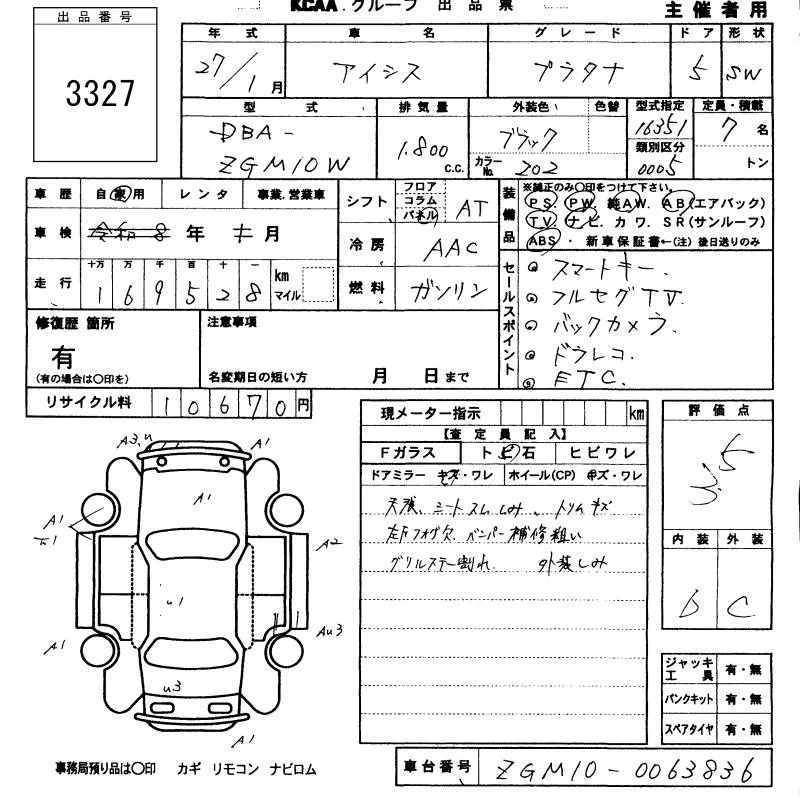 KCAA.グループ 出品票
主催者用
出品番号
3327
年式 車名 グレード ドア 形状
27/1月 アイシス プラタナ 5 SW
型式 排気量 外装色 色替 型式指定 定員・積載
DBA-
ZGM10W
1.800 c.c.
ブラック
カラーNo. 202
16351
類別区分
0005
7名
トン
車歴 自家用 レンタ 事業.営業車
車検 令和8年 月
走行 十万 万 千 百 十 一 km マイル
169528
シフト フロア コラム パネル AT
冷房 AAC
燃料 ガソリン
装備品
※純正のみ〇印をつけて下さい。
PS. PW. 純AW. AB(エアバック)
TV. ナビ. カワ. SR(サンルーフ)
ABS・新車保証書←(注)後日送りのみ
セールスポイント
スマートキー.
フルセグTV.
バックカメラ.
ドラレコ.
ETC.
修復歴 箇所
有
(有の場合は〇印を)
注意事項
名変期日の短い方 月 日まで
リサイクル料 10670円
現メーター指示 km
【査定員記入】
Fガラス トビ石 ヒビワレ
ドアミラー キズ・ワレ ホイール(CP) キズ・ワレ
天張、シートスレしみ、トリムキズ
左Fフォグ欠、バンパー補修粗い
グリルステー割れ 外装しみ
評価点
3.5
内装 外装
b C
ジャッキ工具 有・無
パンクキット 有・無
スペアタイヤ 有・無
A3.u
A1
A1
A1
A2
u1
Au3
A1
u3
A1
事務局預り品は〇印 カギ リモコン ナビロム
車台番号 ZGM10-0063836